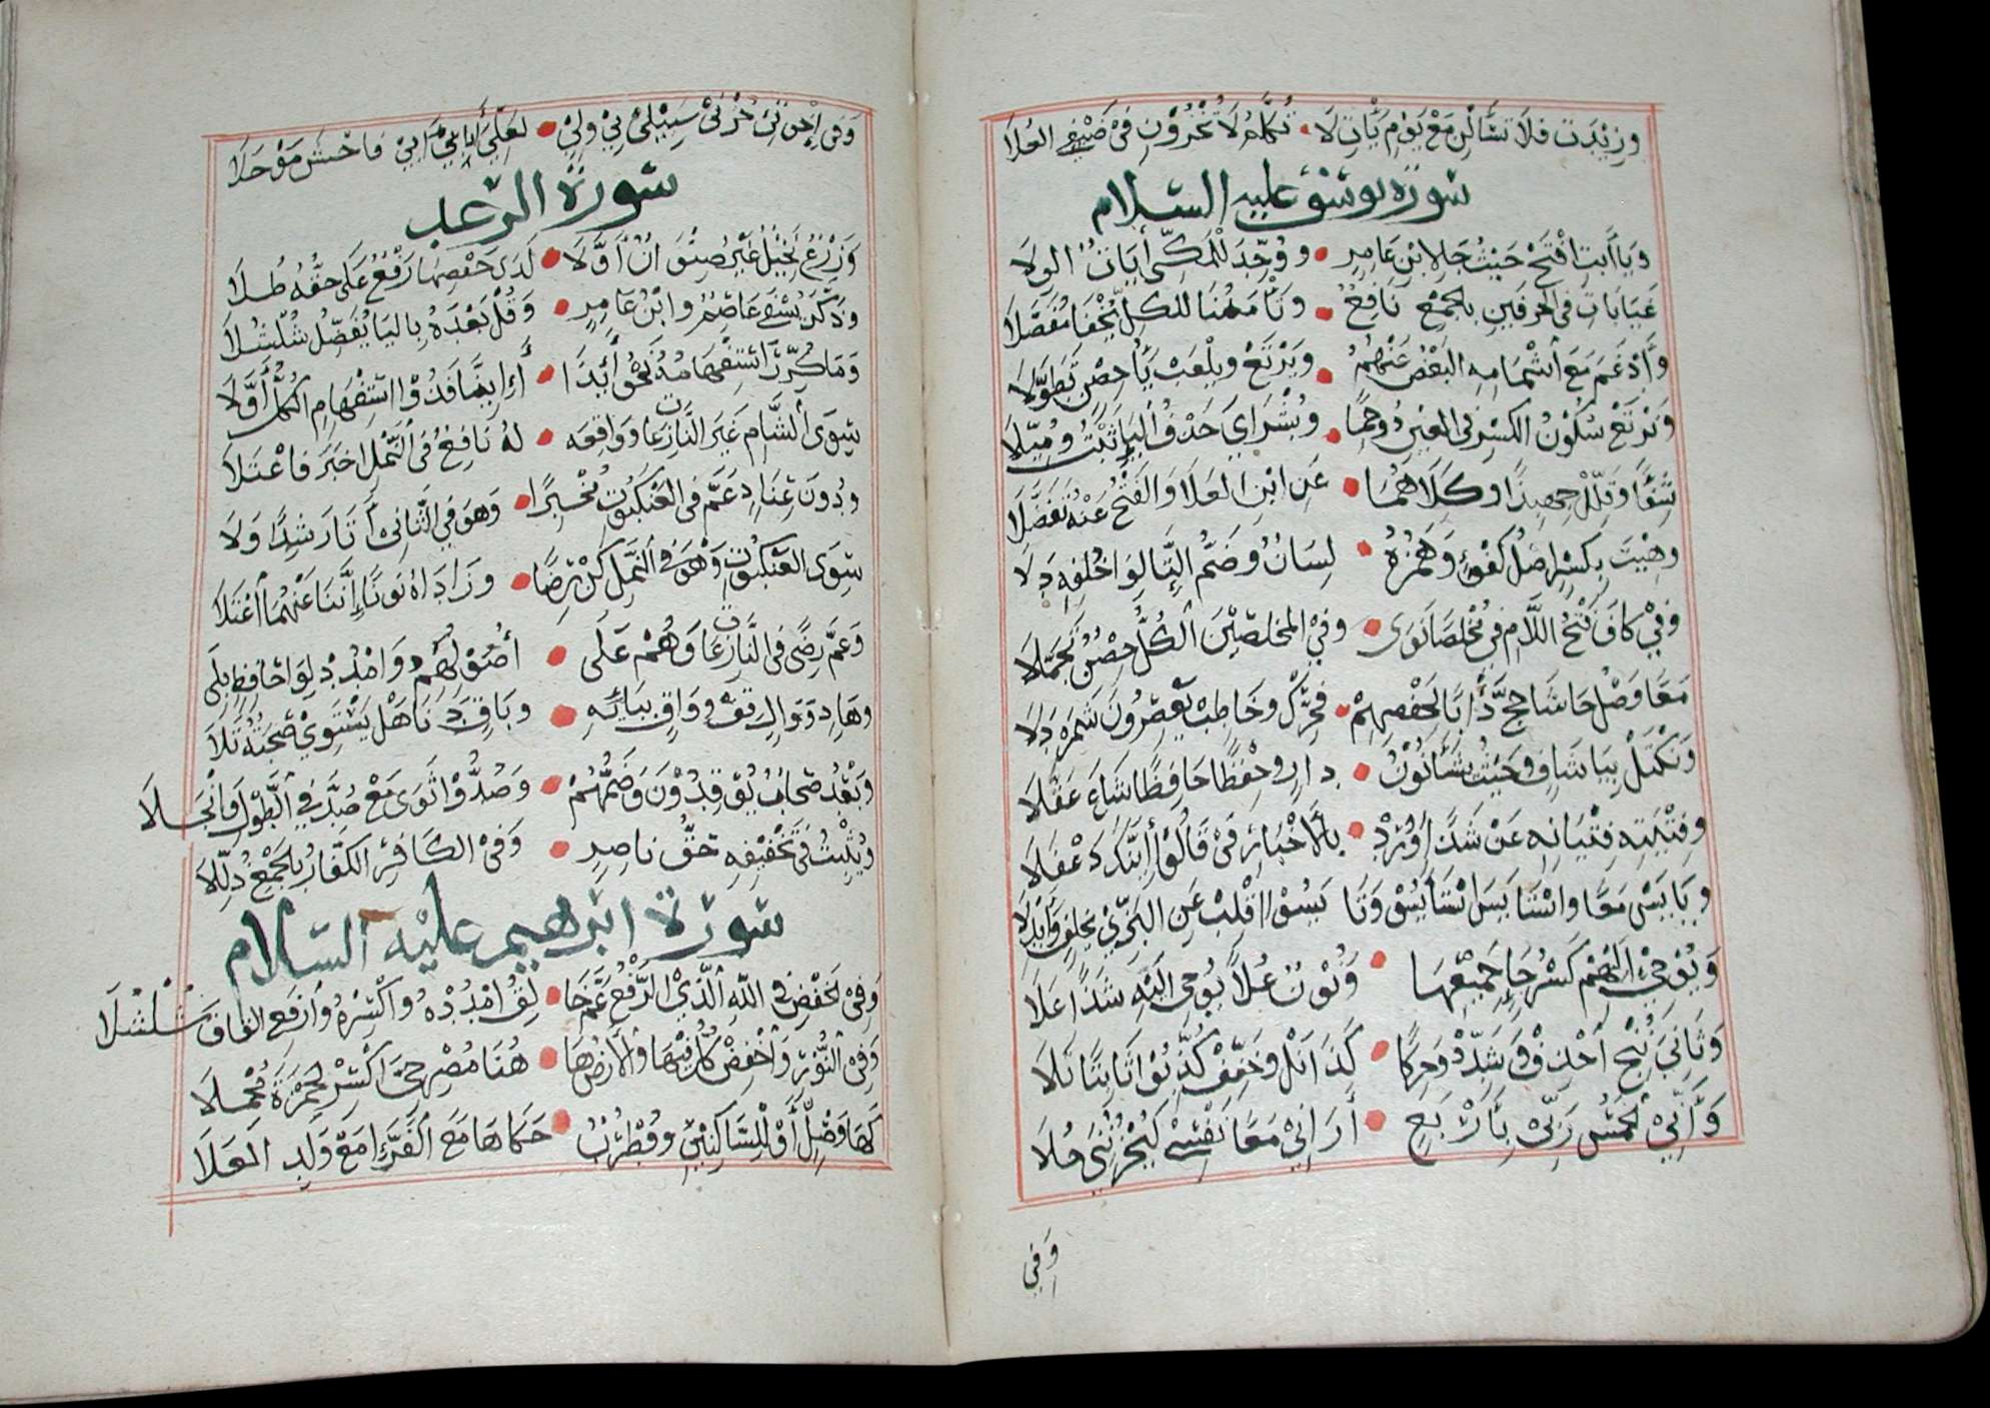 وزيدت فلا تسألن مع يوم يأت لا • تكلم لا تخزون في ضيفي العلا
سورة يوسف عليه السلام
ويا أبت افتح حيث جا لابن عامر • ووحد للمكي آيات الولا
غيابات في الحرفين بالجمع نافع • وتأمننا للكل يخفى مفصلا
وأدغم مع إشمامه البعض عنهم • ويرتع ويلعب ياء حصن تطولا
ويرتع سكون الكسر في العين ذو حما • وبشراي حذف الياء ثبت وميلا
شفا وقلل جهبذا وكلاهما • عن ابن العلا والفتح عنه تفضلا
وهيت بكسر اصل كفؤ وهمزه • لسان وضم التا لوا خلفه دلا
وفي كاف فتح اللام في مخلصا ثوى • وفي المخلصين الكل حصن تجملا
معا وصل حاشا حج دأبا لحفصهم • فحرك وخاطب يعصرون شمردلا
ونكتل بيا شاف وحيث يشاء نون • دار وحفظا حافظا شاع عقلا
وفتيته فتيانه عن شذا ورد • بالاخبار في قالوا أئنك دغفلا
وييأس معا واستيأس استيأسوا وتيأسوا اقلب عن البزي بخلف وأبدلا
ويوحى إليهم كسر حاء جميعها • ونون علا يوحى إليه شذا علا
وثاني ننج احذف وشدد وحركا • كذا نل وخفف كذبوا ثابتا تلا
وأني الخمس ربي بأربع • أراني معا نفسي ليحزنني حلا
وفي
وفي إخوتي حزني سبيلي بي ولي • لعلي آبائي أبي فاخش موحلا
سورة الرعد
وزرع نخيل غير صنوان أولا • لدى خفضها رفع على حقه طلا
وذكر يسقى عاصم وابن عامر • وقل بعده باليا يفضل شلشلا
وما كرر استفهامه نحو أئذا • أئنا فذو استفهام الكل أولا
سوى الشام غير النازعات وواقعه • له نافع في النمل اخبر فاعتلا
ودون عناد عم في العنكبوت مخبرا • وهو في الثاني أتى راشدا ولا
سوى العنكبوت وهو في النمل كن رضا • وزاداه نونا إننا عنهما اعتلا
وعم رضى في النازعات وهم على • أصولهم وامدد لوا حافظ بلى
وهاد ووال قف وواق بيائه • وباق دنا هل يستوي صحبته تلا
وبعد صحاب يوقدون وضمهم • وصدوا ثوى مع صد في الطول وانجلا
ويثبت في تخفيفه حق ناصر • وفي الكافر الكفار بالجمع ذللا
سورة ابرهيم عليه السلام
وفي الخفض في الله الذي الرفع عم خا • لق امدده واكسره وارفع القاف شلشلا
وفي النور واخفض كل فيها والارض ها • هنا مصرخي اكسر لحمزة مجملا
كها وصل أو للساكنين وقطرب • حكاها مع الفراء مع ولد العلا